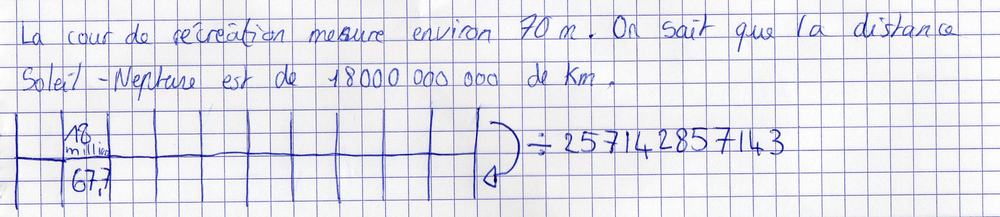 La cour de récréation mesure environ 70 m. On sait que la distance
Soleil - Neptune est de 18000 000 000 de Km.
18
million
÷ 257142857143
67,7